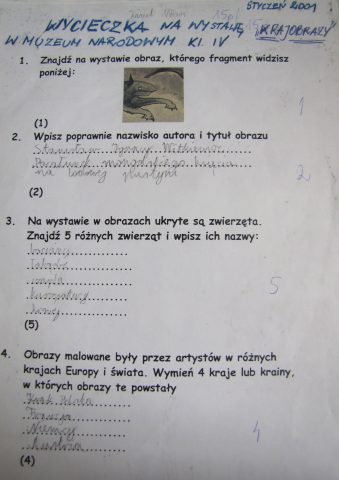 STYCZEŃ 2001
15p
WYCIECZKA NA WYSTAWĘ "KRAJOBRAZY"
W MUZEUM NARODOWYM Kl. IV
1. Znajdź na wystawie obraz, którego fragment widzisz
poniżej:
(1)
1
2. Wpisz poprawnie nazwisko autora i tytuł obrazu
Stanisław Ignacy Witkiewicz
mongolskiego
na lodowej
(2)
2
3. Na wystawie w obrazach ukryte są zwierzęta.
Znajdź 5 różnych zwierząt i wpisz ich nazwy:
barany
łabędź
czapla
kuropatwy
konie
(5)
5
4. Obrazy malowane były przez artystów w różnych
krajach Europy i świata. Wymień 4 kraje lub krainy,
w których obrazy te powstały
Francja
Niemcy
Austria
(4)
4